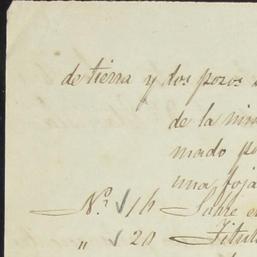 de tierra y dos pozos
de la
mado
una foja
Nº 16 Sobre
" 20